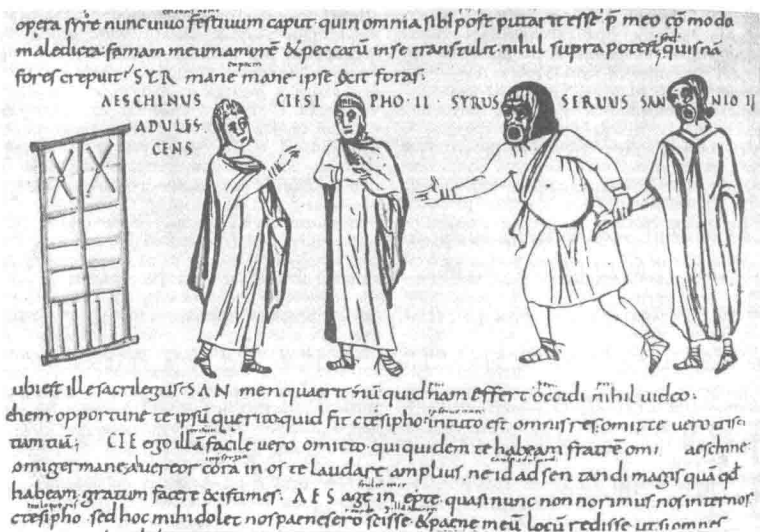 opera syre nunc uiuo festiuum caput quin omnia sibi post putarit esse p̄ meo cōmodo
maledicta famam meum amorē & peccatū in se transtulit nihil supra potest, quis nā
fores crepuit SYR mane mane ipse exit foras.
AESCHINUS CTESI PHO·II· SYRUS SERUUS SAN NIO II
ADULES.
CENS
ubi est ille sacrilegus SAN men quaerit nū quid nam effert occidi nihil uideo.
ehem opportune te ipsū querito quid fit ctesipho intuto est omnis res omitte uero tristi
tiam tuā; CTE ego illā facile uero omitto qui quidem te habeam fratrē o mi aeschine
o mi germane a uereor corā in os te laudare amplius, ne id adsentandi magis quā qd̄
habeam gratum facere existimes. AES age inepte quasi nunc non norimus nos internos
ctesipho sed hoc mihi dolet nos paene sero scisse & paene meū locū redisse ut si omnes